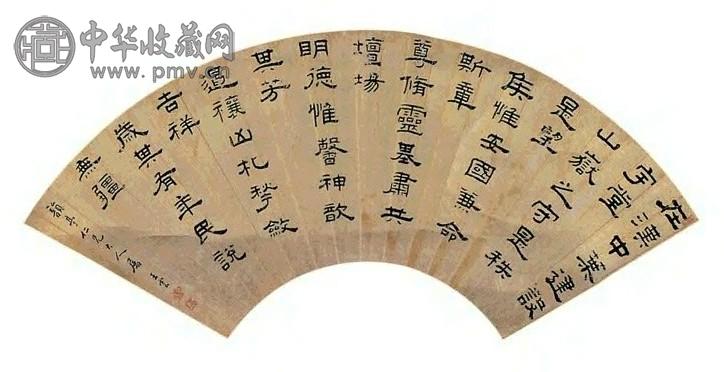 中华收藏网
www.pmv.cn
在漢中葉建設
宇堂
山嶽之守是秩
是望
侯惟安國兼命
斯章
尊脩靈基肅共
壇場
明德惟馨神歆
其芳
遏禳凶札揫斂
吉祥
歲其有年民說
無疆
亭仁兄大人屬